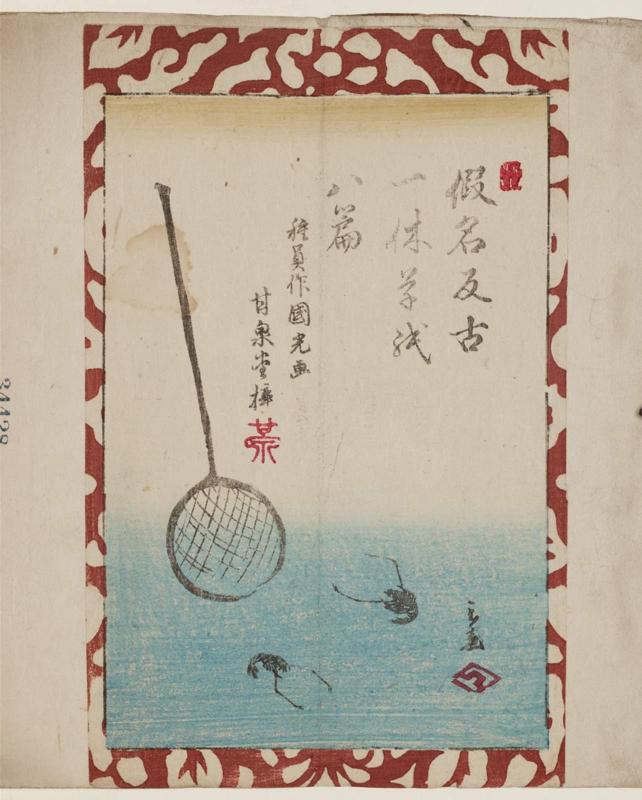 假名反古
一休草紙
八篇
種員作國光画
甘泉堂梓
24428